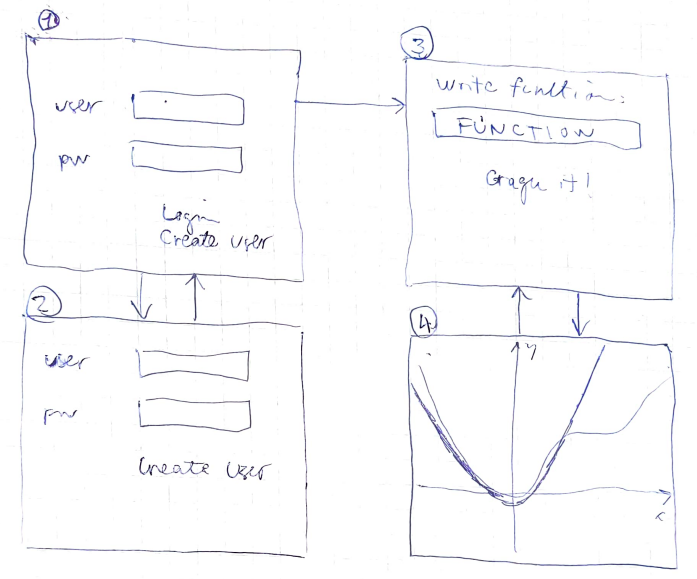 1
user
pw
Login
Create User
2
user
pw
Create User
3
Write function:
FUNCTION
Graph it!
4
y
x